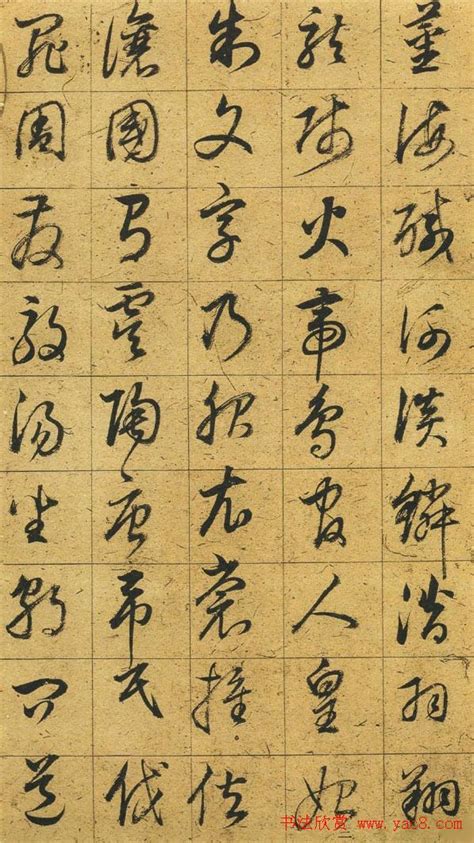 薑海鹹河淡鱗潛羽翔
龍師火帝鳥官人皇始
制文字乃服衣裳推位
讓國有虞陶唐吊民伐
罪周發殷湯坐朝問道
书法欣赏 www.yac8.com